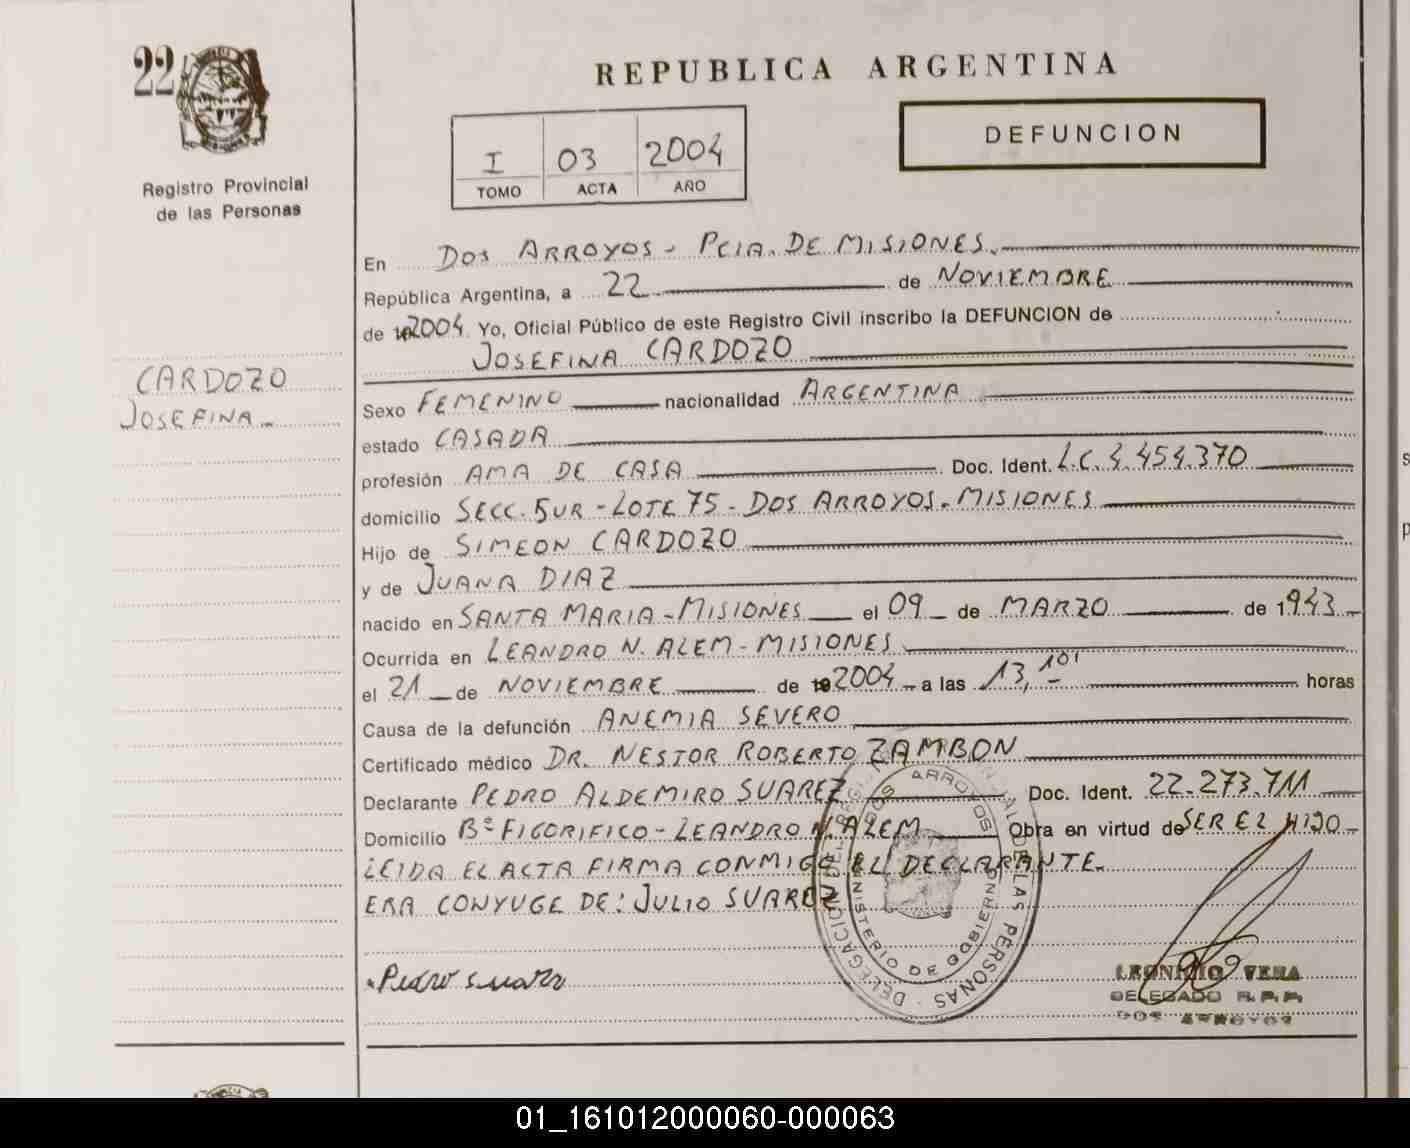 22
Registro Provincial
de las Personas
REPUBLICA ARGENTINA
I 03 2004
TOMO ACTA AÑO
DEFUNCION
CARDOZO
JOSEFINA
En DOS ARROYOS - PCIA. DE MISIONES.
República Argentina, a 22 de NOVIEMBRE
de 2004. Yo, Oficial Público de este Registro Civil inscribo la DEFUNCION de
JOSEFINA CARDOZO
Sexo FEMENINO nacionalidad ARGENTINA
estado CASADA
profesión AMA DE CASA Doc. Ident. L.C. 4.454.370
domicilio SECC. SUR - LOTE 75 - DOS ARROYOS. MISIONES
Hijo de SIMEON CARDOZO
y de JUANA DIAZ
nacido en SANTA MARIA - MISIONES el 09 de MARZO de 1943
Ocurrida en LEANDRO N. ALEM - MISIONES
el 21 de NOVIEMBRE de 2004 a las 13,10' horas
Causa de la defunción ANEMIA SEVERO
Certificado médico DR. NESTOR ROBERTO ZAMBON
Declarante PEDRO ALDEMIRO SUAREZ Doc. Ident. 22.273.711
Domicilio Bº FIGORIFICO - LEANDRO N. ALEM Obra en virtud de SER EL HIJO -
LEIDA EL ACTA FIRMA CONMIGO EL DECLARANTE.
ERA CONYUGE DE: JULIO SUAREZ
DOS ARROYOS
MINISTERIO DE GOBIERNO
DELEGACION DE LAS PERSONAS
Pedro Suarez
VERA
DELEGADO R.P.P.
DOS ARROYOS
01_161012000060-000063